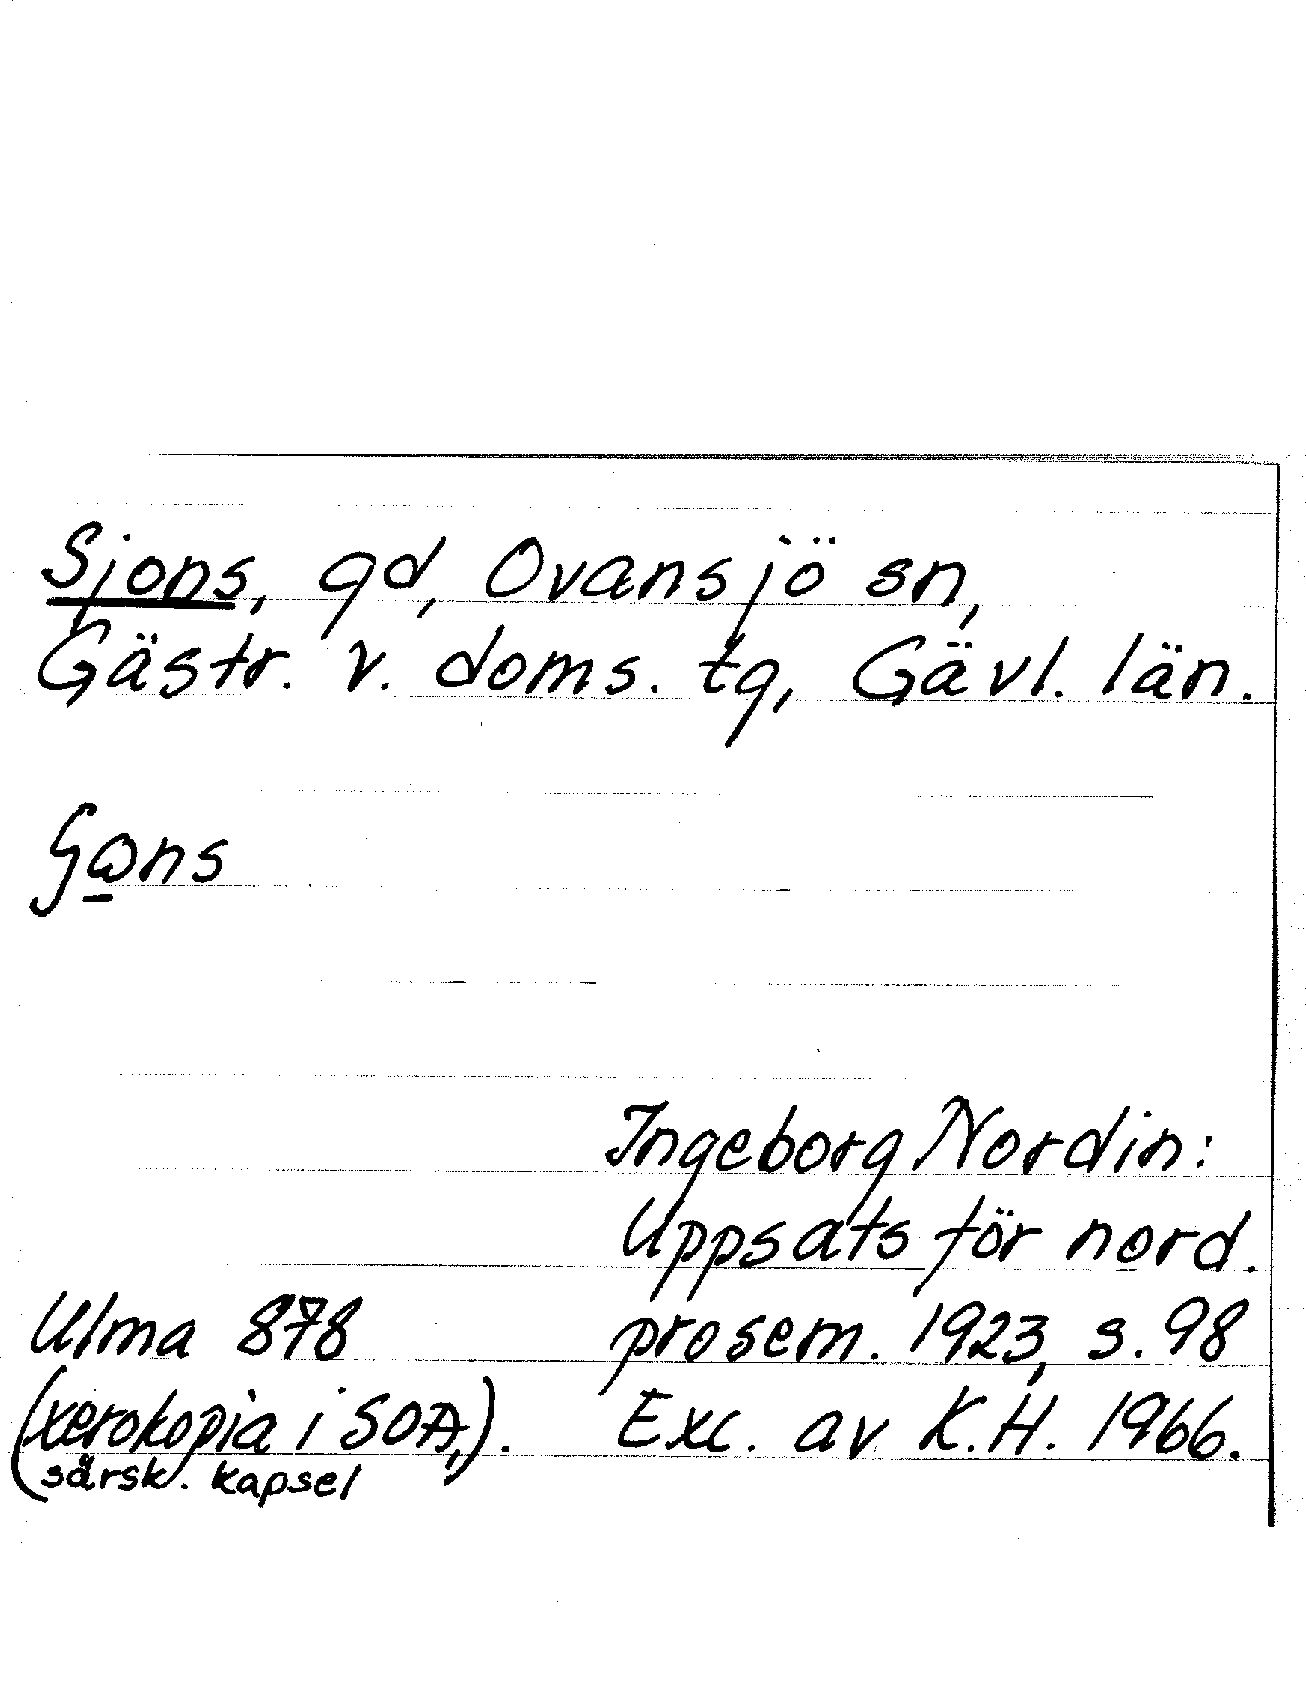 Sjons, gd, Ovansjö sn,
Gästr. v. doms. tg, Gävl. län.
Ingeborg Nordin:
Uppsats för nord.
Ulma 878 prosem. 1923, s. 98
(xerokopia i SOA,). Exc. av K.H. 1966.
särsk. kapsel